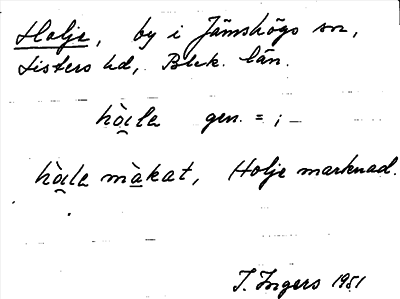 Holje, by i Jämshögs sn,
Listers hd, Blek. län.
hòla gen. = ; –
hòla màkat, Holje marknad.
I. Ingers 1951